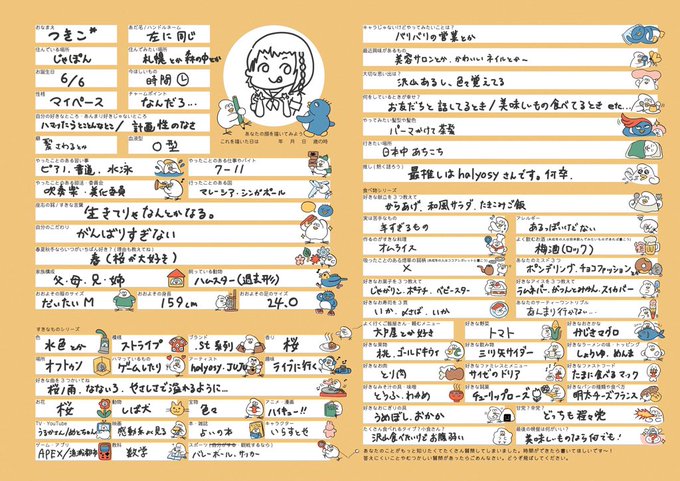 おなまえ
つきご
あだ名 / ハンドルネーム
左に同じ
住んでいる場所
じゃぽん
住んでみたい場所
札幌とか森の中とか
お誕生日
6/6
今ほしいもの
時間
性格
マイペース
チャームポイント
なんだろ...
自分の好きなところ・あんまり好きじゃないところ
ハマったらとことんなとこ / 計画性のなさ
癖
髪さわるとか
血液型
O型
あなたの顔を描いてみよう
これを描いた日は 年 月 日 歳の時
やったことのある習い事
ピアノ、書道、水泳
やったことのある仕事やバイト
7-11
やったことのある部活・委員会
吹奏楽・美化委員
行ったことのある国
マレーシア・シンガポール
座右の銘 / すきな言葉
生きてりゃなんとかなる。
自分のこだわり
がんばりすぎない
春夏秋冬ならいつがいちばん好き?(理由も教えてね)
春(桜が大好き)
家族構成
父・母・兄・姉
飼っている動物
ハムスター(過去形)
おおよその服のサイズ
だいたいM
おおよその身長
159cm
おおよその靴のサイズ
24.0
すきなものシリーズ
色
水色とか
模様
ストライプ
ブランド
St.系列
香り
桜
場所
オフトゥン
ハマっているもの
ゲームしたり
アーティスト
holyosy、JUJU
趣味
ライブに行く
好きな曲を3つかいてね
桜/雨、なないろ、やさしさで溢れるように...
お花
桜
動物
しば犬
宝物
色々
アニメ・漫画
ハイキュー!!
TV・YouTube
うるかさん/めとちゃん
映画
感動系が見る
本・雑誌
占いの本
キャラクター
いらすとや
ゲーム・アプリ
APEX/
教科
数学
スポーツ(自分がする、観戦するなら)
バレーボール、サッカー
キャラじゃないけどやってみたいことは?
バリバリの営業とか
最近興味があるもの
美容サロンとか、かわいいネイルとか〜
大切な思い出は?
沢山あるし、色々覚えてる
何をしているときが幸せ?
お友だちと話してるとき / 美味しいもの食べてるとき etc...
やってみたい髪型や髪色
パーマかけて茶髪
行きたい場所
日本中あちこち
推し(熱く語ろう)
最推しはholyosyさんです。何卒。
食べ物シリーズ
好きな献立を3つ教えて
からあげ、和風サラダ、たまごご飯
実は苦手なもの
辛すぎるもの
アレルギー
あるっぽいけどない
作るのがすきな料理
オムライス
よく飲むお酒
梅酒(ロック)
×
あなたのミスド3つ
ポンデリング、チョコファッション
好きなお菓子を3つ教えて
じゃがりこ、ポテチ、ベビースター
好きなアイスを3つ教えて
ラムネバー、がつんとみかん、スイカバー
好きなお寿司を3貫
いか、さば、いか
あなたのサーティーワントリプル
あんまり行かない...
よく行くご飯屋さん・頼むメニュー
大戸屋とか好き
好きな野菜
トマト
好きなおさかな
かじきマグロ
好きな果物
桃、ゴールドキウイ
好きな飲み物
三ツ矢サイダー
好きなラーメンの味・トッピング
しょうゆ、めんま
好きなお肉
とり肉
好きなファミレスメニュー
サイゼのドリア
好きなファストフード
たまに食べるマック
好きなみそ汁の具・味噌
とうふ、わかめ
好きな給食
チューリップローズ
好きなパンの種類や食べ方
明太チーズフランス
好きなおにぎりの具
うめぼし、おかか
甘党?辛党?
どっちも程々党
たくさん食べれるタイプ?小食さん?
沢山食べたいけどお腹弱い
最後の晩餐は何がいい?
美味しいものなら何でも!
あなたのことがもっと知りたくてたくさん質問してしまいました。時間ができたら書いてほしいです〜!
答えにくいことやむつかしい質問があったらごめんなさい。どうぞ飛ばしてください。